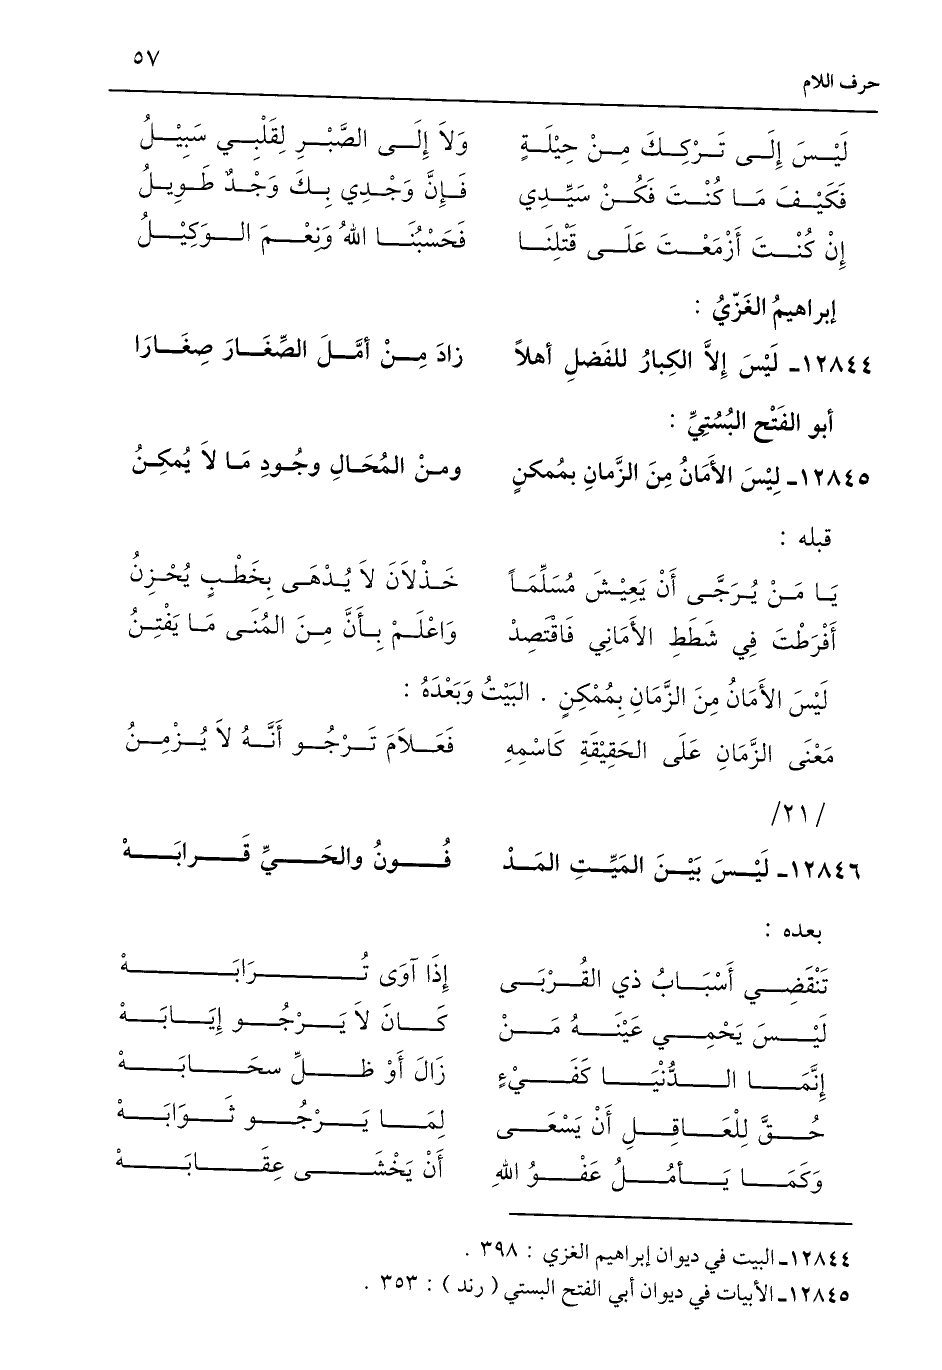 ٥٧
حرف اللام
لَيْسَ إِلَى تَرْكِكَ مِنْ حِيْلَةٍ وَلاَ إِلَى الصَّبْرِ لِقَلْبِي سَبِيْلُ
فَكَيْفَ مَا كُنْتَ فَكُنْ سَيِّدِي فَإِنَّ وَجْدِي بِكَ وَجْدٌ طَوِيلُ
إِنْ كُنْتَ أَزْمَعْتَ عَلَى قَتْلِنَا فَحَسْبُنَا اللهُ وَنِعْمَ الوَكِيْلُ
إبراهيمُ الغَزِّيُ :
١٢٨٤٤ـ لَيْسَ إِلاَّ الكِبارُ للفَضلِ أهلاً زادَ مِنْ أمَّلَ الصِّغَارَ صِغَارَا
أبو الفَتْح البُسْتِيِّ :
١٢٨٤٥ـ لِيْسَ الأَمَانُ مِنَ الزَّمانِ بمُمكنٍ ومنْ المُحَالِ وجُودِ مَا لاَ يُمكِنُ
قبله :
يَا مَنْ يُرَجَّى أَنْ يَعِيْشَ مُسَلِّمَاً خَذْلاَنَ لاَ يُدْهَى بِخَطْبٍ يُحْزِنُ
أَفْرَطْتَ فِي شَطَطِ الأَمَانِي فَاقْتَصِدْ وَاعْلَمْ بِأَنَّ مِنَ المُنَى مَا يَفْتِنُ
لَيْسَ الأَمَانُ مِنَ الزَّمَانِ بِمُمْكِنٍ . البَيْتُ وَبَعْدَهُ :
مَعْنَى الزَّمَانِ عَلَى الحَقِيْقَةِ كَاسْمِهِ فَعَلاَمَ تَرْجُو أَنَّهُ لاَ يُزْمِنُ
/٢١/
١٢٨٤٦ـ لَيْسَ بَيْنَ المَيِّتِ المَدْ فُونُ والحَيِّ قَرابَهْ
بعده :
تَنْقَضِي أَسْبَابُ ذي القُرْبَى إِذَا آوَى تُرَابَهْ
لَيْسَ يَحْمِي عَيْنَهُ مَنْ كَانَ لاَ يَرْجُو إِيَابَهْ
إِنَّمَا الدُّنْيَا كَفَيْءٍ زَالَ أَوْ ظلِّ سحَابَهْ
حُقَّ لِلْعَاقِلِ أَنْ يَسْعَى لِمَا يَرْجُو ثَوَابَهْ
وَكَمَا يَأمُلُ عَفْوُ اللهِ أَنْ يَخْشَى عِقَابَهْ
١٢٨٤٤ـ البيت في ديوان إبراهيم الغزي : ٣٩٨ .
١٢٨٤٥ـ الأبيات في ديوان أبي الفتح البستي ( رند ) : ٣٥٣ .